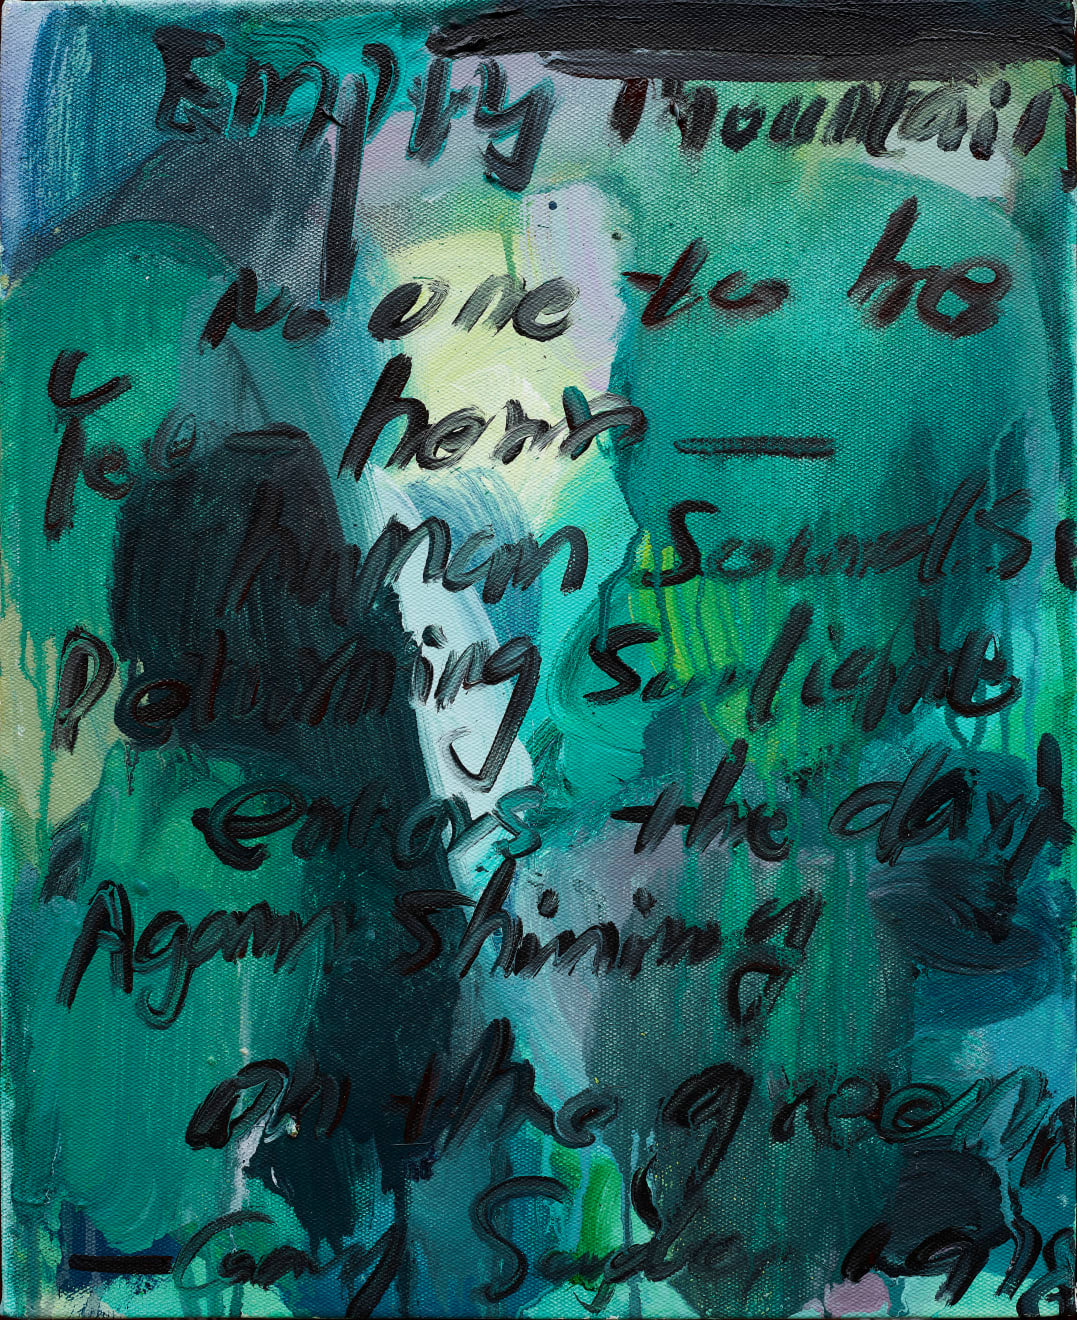 Empty Mountain
No one to be
Too — henrr —
human Soundsi
Returning Sunlight
enters the dark
Again shining
on the green
— Gary Snyder